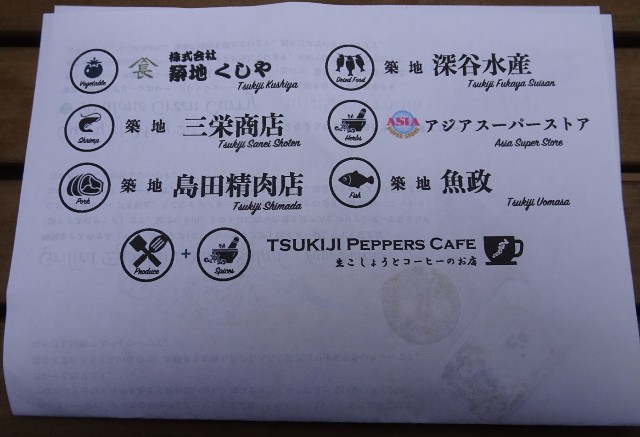 Vegetable
長
株式会社
築地くしや
Tsukiji Kushiya
Dried Food
築地 深谷水産
Tsukiji Fukaya Suisan
Shrimp
築地 三栄商店
Tsukiji Sanei Shoten
Herbs
ASIA
アジアスーパーストア
Asia Super Store
Pork
築地 島田精肉店
Tsukiji Shimada
Fish
築地 魚政
Tsukiji Uomasa
Produce
+
Spices
TSUKIJI PEPPERS CAFE
生こしょうとコーヒーのお店